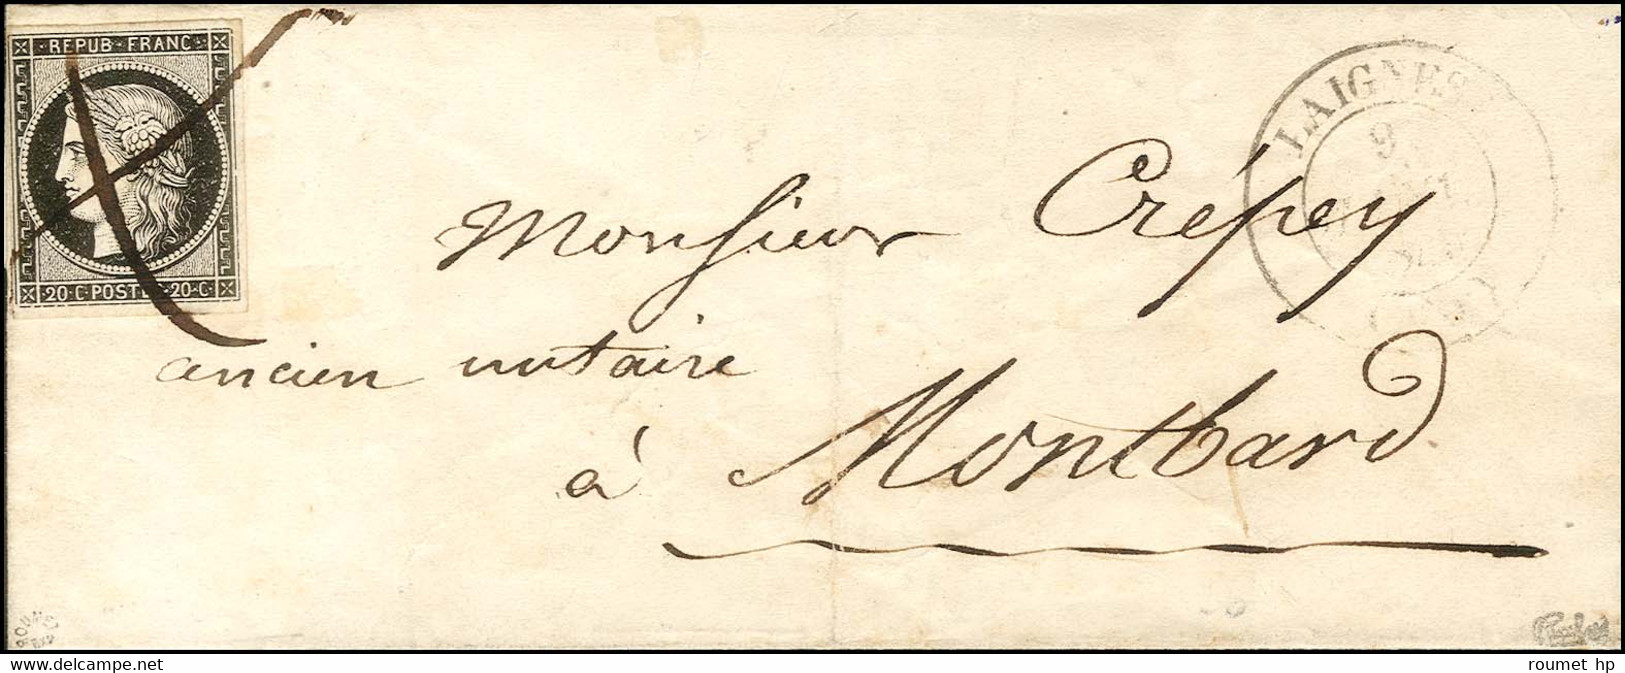 REPUB·FRANC
20·C·POSTES·20·C·
LAIGNES
9
Monsieur Crépey
ancien notaire
à Montbard
ROUMET
EXP
roumet hp